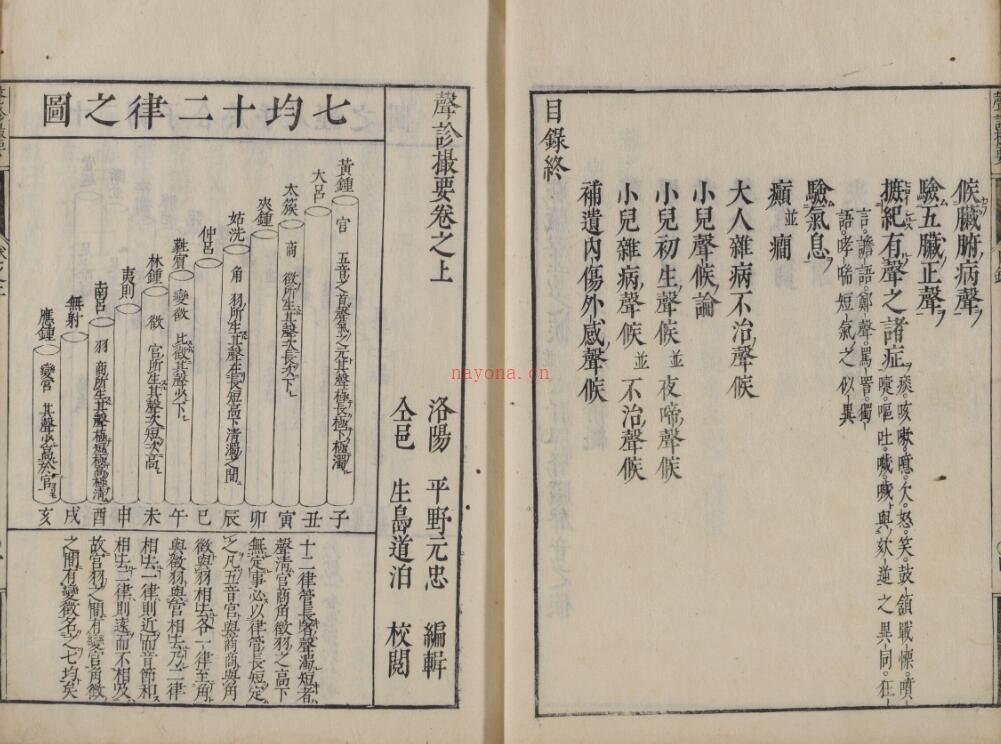 候臟腑病聲
驗五臟正聲
摭紀有聲之諸症 痰咳嗽噫欠怒笑鼓頷戰慄噴
嚏嘔吐噦噦與欬逆之異同狂
言譫語鄭聲罵詈獨
語哮喘短氣之似異
驗氣息
癲並癇
大人雜病不治聲候
小兒聲候論
小兒初生聲候並夜啼聲候
小兒雜病聲候並不治聲候
補遺內傷外感聲候
目錄終
聲診撮要卷之上
洛陽 平野元忠 編輯
仝邑 生島道泊 校閲
七均十二律之圖
黃鍾 宮 五音之首聲氣之元其聲極長極下極濁 子
大呂 丑
太簇 商 徵所生其聲次長次下 寅
夾鍾 卯
姑洗 角 羽所生其聲在長短高下清濁之間 辰
仲呂 巳
蕤賓 變徵 比徵其聲必下 午
林鍾 徵 宮所生其聲次短次高 未
夷則 申
南呂 羽 商所生其聲極短極高極清 酉
無射 戌
應鍾 變宮 其聲必高於宮 亥
十二律管長者聲濁短者
聲清宮商角徵羽之高下
無定事必以律管長短定
之凡五音宮與商商與角
徵與羽相去各一律至角
與徵羽與宮相去乃二律
相去一律則近而音節和
相去二律則遠而不相及
故宮羽之間有變宮角徵
之間有變徵名之七均矣
nayona.cn